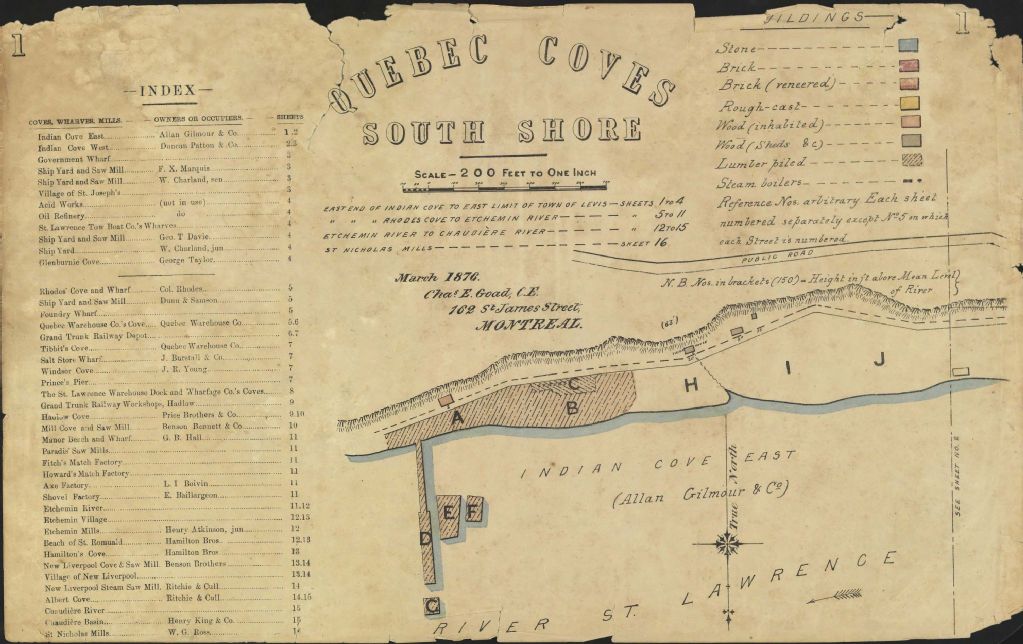 1
—INDEX—
COVES, WHARVES, MILLS. OWNERS OR OCCUPIERS. SHEETS
Indian Cove East Allan Gilmour & Co. 1.2
Indian Cove West Duncan Patton & Co. 2.3
Government Wharf 3
Ship Yard and Saw Mill F. X. Marquis 3
Ship Yard and Saw Mill W. Charland, sen 3
Village of St. Joseph's 3
Acid Works (not in use) 4
Oil Refinery do 4
St. Lawrence Tow Boat Co.'s Wharves 4
Ship Yard and Saw Mill Geo. T Davie 4
Ship Yard W. Charland, jun 4
Glenburnie Cove George Taylor 4
Rhodes' Cove and Wharf Col. Rhodes 5
Ship Yard and Saw Mill Dunn & Samson 5
Foundry Wharf 5
Quebec Warehouse Co.'s Cove Quebec Warehouse Co. 5.6
Grand Trunk Railway Depot 6.7
Tibbit's Cove Quebec Warehouse Co. 7
Salt Store Wharf J. Burstall & Co. 7
Windsor Cove J. R. Young 7
Prince's Pier 7
The St. Lawrence Warehouse Dock and Wharfage Co.'s Coves 8
Grand Trunk Railway Workshops, Hadlow 9
Hadlow Cove Price Brothers & Co. 9.10
Mill Cove and Saw Mill Benson Bennett & Co. 10
Manor Beach and Wharf G. B. Hall 11
Paradis' Saw Mills 11
Fitch's Match Factory 11
Howard's Match Factory 11
Axe Factory L. I Boivin 11
Shovel Factory E. Baillargeon 11
Etchemin River 11.12
Etchemin Village 12.13
Etchemin Mills Henry Atkinson, jun 12
Beach of St. Romuald Hamilton Bros 12.13
Hamilton's Cove Hamilton Bros 13
New Liverpool Cove & Saw Mill Benson Brothers 13.14
Village of New Liverpool 13.14
New Liverpool Steam Saw Mill Ritchie & Cull 14
Albert Cove Ritchie & Cull 14.15
Chaudière River 15
Chaudière Basin Henry King & Co. 15
St Nicholas Mills W. G. Ross 16
QUEBEC COVES
SOUTH SHORE
SCALE—200 FEET TO ONE INCH
EAST END OF INDIAN COVE TO EAST LIMIT OF TOWN OF LEVIS—SHEETS 1 TO 4
" " RHODES COVE TO ETCHEMIN RIVER— " 5 TO 11
ETCHEMIN RIVER TO CHAUDIÈRE RIVER— " 12 TO 15
ST NICHOLAS MILLS—SHEET 16
March 1876.
Chas. E. Goad, C.E.
162 St James Street,
MONTREAL.
1
Stone
Brick
Brick (veneered)
Rough-cast
Wood (inhabited)
Wood (Sheds &c)
Lumber piled
Steam boilers
Reference Nos. arbitrary Each sheet
numbered separately except No 5 on which
each Street is numbered
PUBLIC ROAD
N. B. Nos. in brackets (150') = Height in ft above Mean Level
of River
A
B
C
D
E
F
G
H
I
J
INDIAN COVE EAST
(Allan Gilmour & Co)
True North
SEE SHEET NO. 2
RIVER ST. LAWRENCE